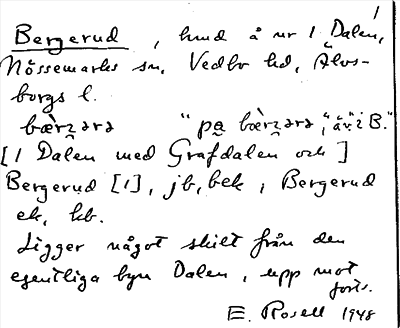 1
Bergerud, hmd å nr 1 Dalen,
Nössemarks sn, Vedbo hd, Älvs-
borgs l.
bæ̀rʒərə " pa bæ̀rʒərə, "ä̀r i B."
[1 Dalen med Grafdalen och]
Bergerud [1], jb, bek, Bergerud
ek, kb.
Ligger något skilt från den
egentliga byn Dalen, upp mot
forts.
E. Rosell 1948